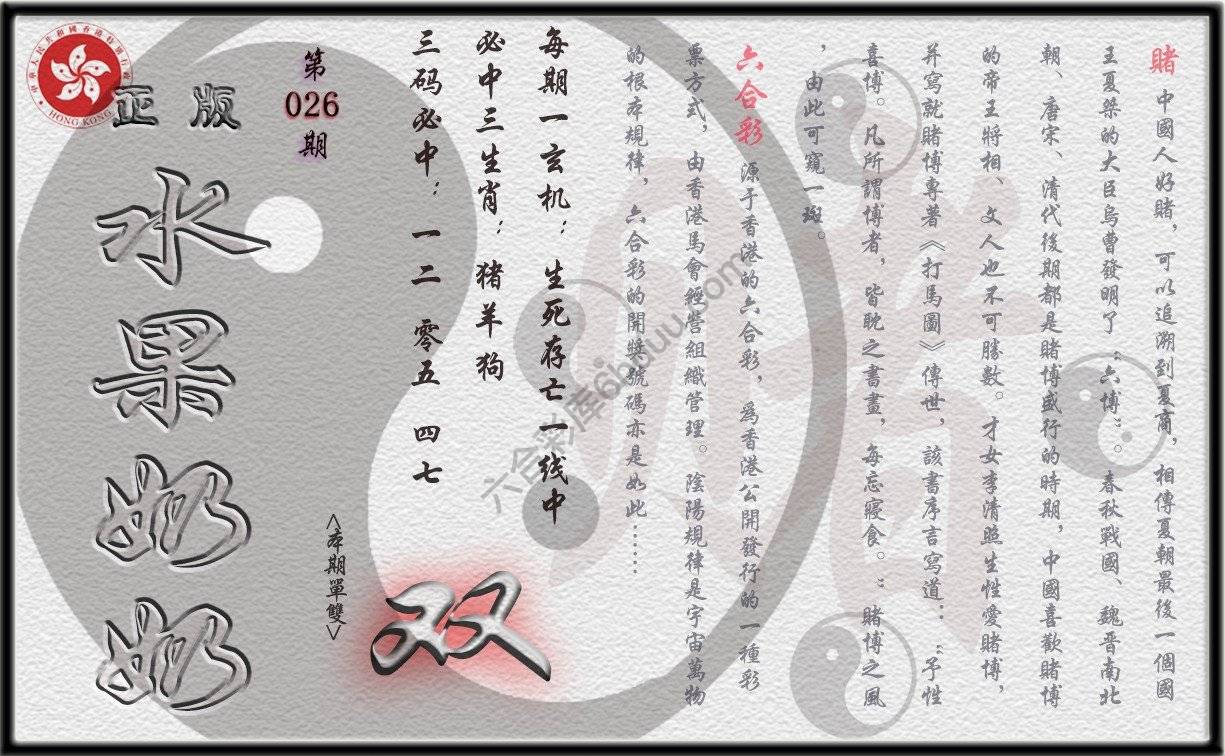 賭 中國人好賭，可以追溯到夏商，相傳夏朝最後一個國
王夏桀的大臣烏曹發明了“六博”。春秋戰國、魏晋南北
朝、唐宋、清代後期都是賭博盛行的時期，中國喜歡賭博
的帝王將相、文人也不可勝數。才女李清照生性愛賭博，
并寫就賭博專著《打馬圖》傳世，該書序言寫道：“予性
喜博。凡所謂博者，皆耽之書畫，每忘寢食。”賭博之風
，由此可窺一斑。
六合彩 源于香港的六合彩，爲香港公開發行的一種彩
票方式，由香港馬會經營組織管理。陰陽規律是宇宙萬物
的根本規律，六合彩的開獎號碼亦是如此……
每期一玄机：生死存亡一线中
必中三生肖：猪羊狗
三码必中：一二 零五 四七
第
026
期
<本期單雙>
双
正版
水果奶奶
中華人民共和國香港特別行政區
HONG KONG
賭
六合彩库6hduu.com